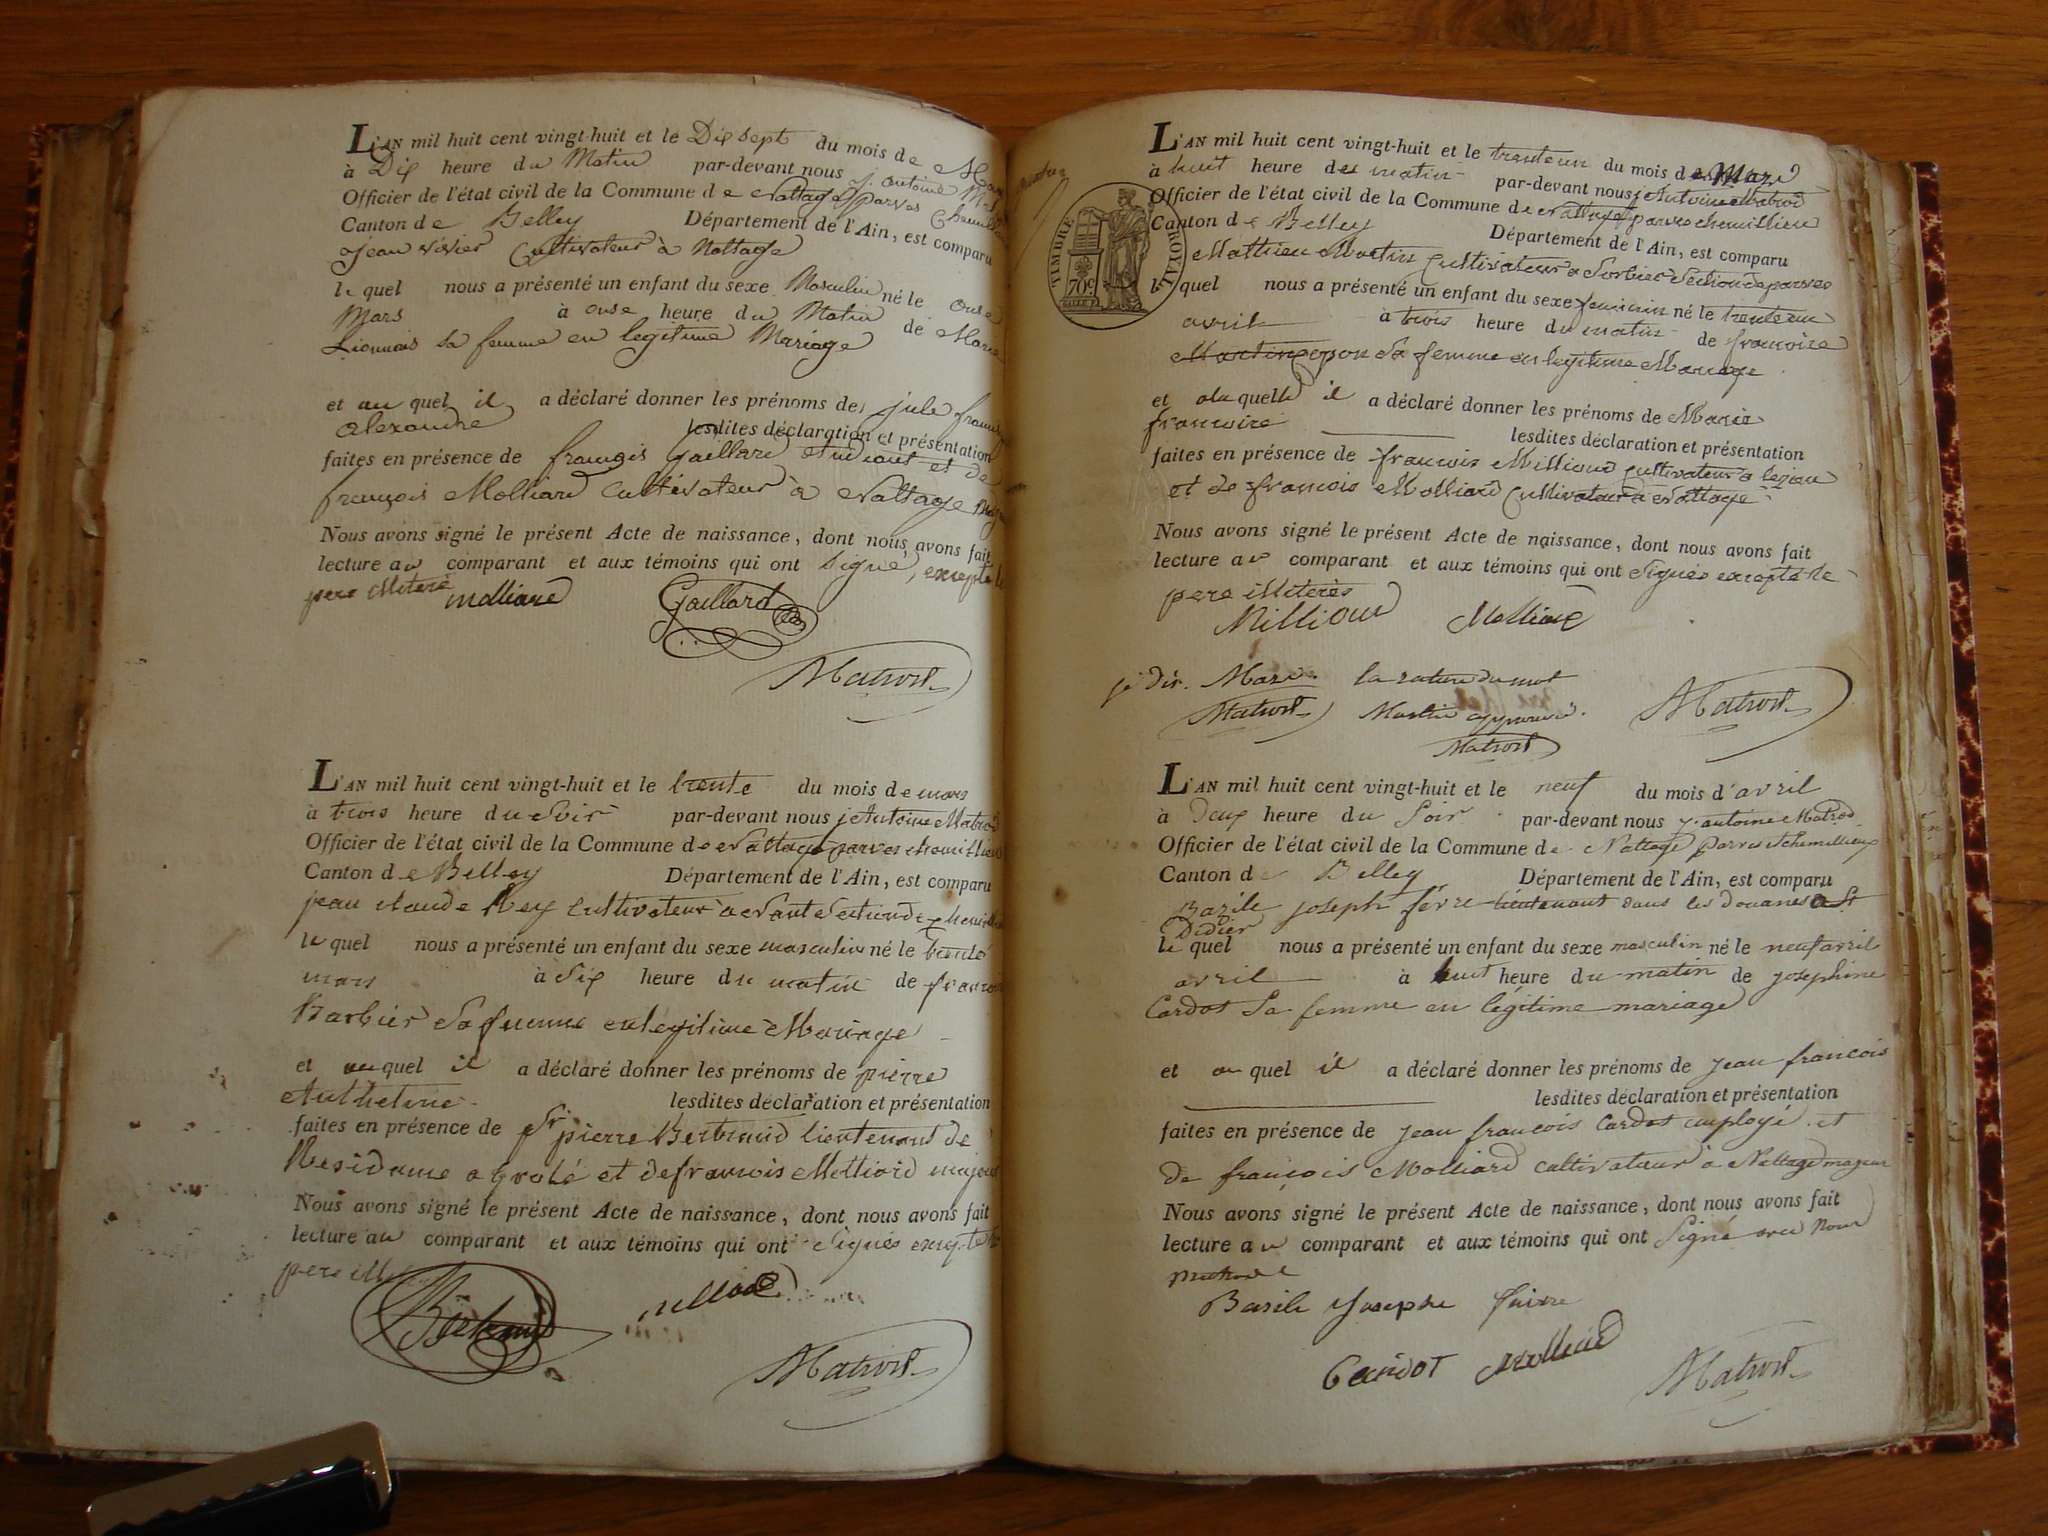 L'AN mil huit cent vingt-huit et le Dix sept du mois de
à Dix heure du Matin par-devant nous j. antoine
Officier de l'état civil de la Commune de Nattage parves
Canton de Belley Département de l'Ain, est comparu
jean vivier Cultivateur à Nattage
le quel nous a présenté un enfant du sexe Masculin né le onse
Mars à onse heure du Matin de Marie
Lionnais sa femme en legitime Mariage
et au quel il a déclaré donner les prénoms de jule
alexandre lesdites déclaration et présentation
faites en présence de françois Gaillard et de
françois Molliard Cultivateur à Nattage
Nous avons signé le présent Acte de naissance, dont nous avons fait
lecture au comparant et aux témoins qui ont signé, excepté le
pere
molliard Gaillard
Matrod
L'AN mil huit cent vingt-huit et le trente du mois de mars
à trois heure du soir par-devant nous j Antoine Matrod
Officier de l'état civil de la Commune de Nattage parves
Canton de Belley Département de l'Ain, est comparu
jean claude Rey cultivateur à
le quel nous a présenté un enfant du sexe masculin né le trente
mars à Six heure du matin de
Barbier Sa femme en legitime Mariage
et au quel il a déclaré donner les prénoms de pierre
Anthelme lesdites déclaration et présentation
faites en présence de Sr pierre Bertrand lieutenant de
Residance a et de francois Molliard majeur
Nous avons signé le présent Acte de naissance, dont nous avons fait
lecture au comparant et aux témoins qui ont Signés excepté le
pere
Bertrand molliard
Matrod
TIMBRE ROYAL
70c
L'AN mil huit cent vingt-huit et le trenteun du mois de Mars
à huit heure de matin par-devant nous j Antoine Matrod
Officier de l'état civil de la Commune de Nattage parves chemillieu
Canton de Belley Département de l'Ain, est comparu
Mathieu Martin Cultivateur a Sorbier Section de parves
le quel nous a présenté un enfant du sexe feminin né le trente un
avril à trois heure du matin de francoise
sa femme en legitime Mariage
et a laquelle il a déclaré donner les prénoms de Marie
francoise lesdites déclaration et présentation
faites en présence de francois Millioud Cultivateur a
et de francois Molliard Cultivateur a Nattage
Nous avons signé le présent Acte de naissance, dont nous avons fait
lecture au comparant et aux témoins qui ont Signés excepté le
pere
Millioud Molliard
je dis. Mars. la rature du mot
Matrod Martin approuvé. Matrod
Matrod
L'AN mil huit cent vingt-huit et le neuf du mois d'avril
à Deux heure du Soir par-devant nous j. antoine Matrod
Officier de l'état civil de la Commune de Nattage parves et chemillieux
Canton de Belley Département de l'Ain, est comparu
Bazile joseph févre lieutenant dans les douanes a St
Didier
le quel nous a présenté un enfant du sexe masculin né le neuf avril
avril à huit heure du matin de josephine
Cardot Sa femme en légitime mariage
et au quel il a déclaré donner les prénoms de jean francois
lesdites déclaration et présentation
faites en présence de jean francois Cardot employé et
de françois Molliard cultivateur à Nattage majeur
Nous avons signé le présent Acte de naissance, dont nous avons fait
lecture au comparant et aux témoins qui ont Signé avec nous
Basile Josephe faivre
Cardot Molliard Matrod